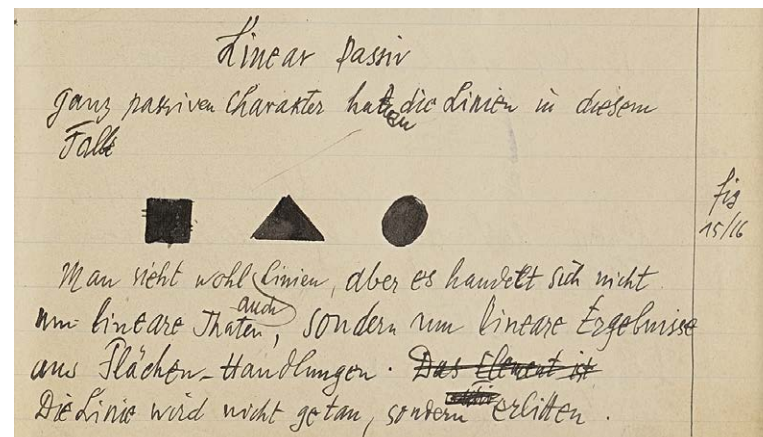 Linear passiv
ganz passiven Charakter haben die Linien in diesem
Falle
fig
15/16
Man sieht wohl Linien, aber es handelt sich nicht
auch
um lineare Thaten, sondern um lineare Ergebnisse
aus Flächen-Handlungen. Das Element ist
Die Linie wird nicht getan, sondern erlitten.